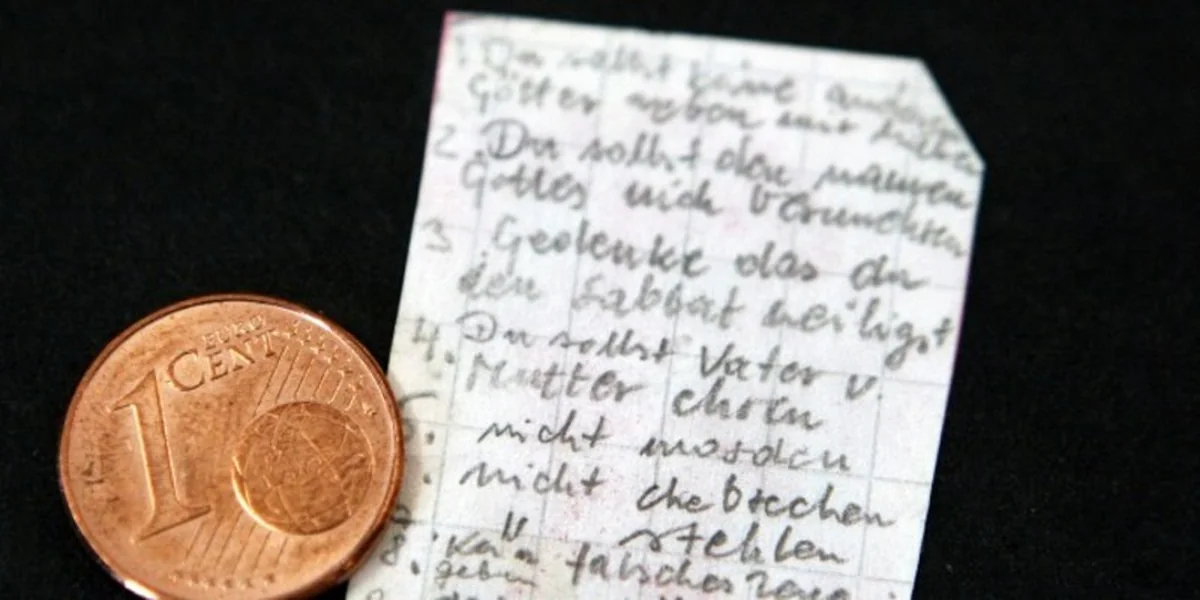 1. Du sollst keine anderen
Götter neben mir haben
2. Du sollst den namen
Gottes nich verunehren
3 Gedenke das du
den Sabbat heiligst
4. Du sollst Vater u.
Mutter ehren
5. nicht morden
. nicht ehebrechen
7 " stehlen
8. falsches Zeug
geben
1 EURO
CENT